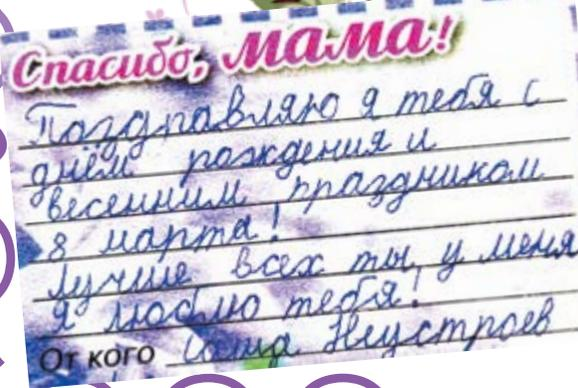 Спасибо, мама!
Поздравляю я тебя с
днём рождения и
весенним праздником
8 марта!
Лучше всех ты, у меня
Я люблю тебя!
От кого Саша Неустроев